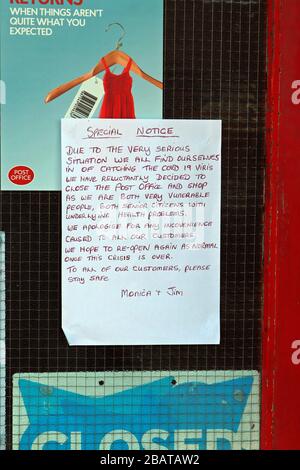 RETURNS
WHEN THINGS AREN'T
QUITE WHAT YOU
EXPECTED
POST
OFFICE
SPECIAL NOTICE
DUE TO THE VERY SERIOUS
SITUATION WE ALL FIND OURSELVES
IN OF CATCHING THE COVID 19 VIRIS
WE HAVE RELUCTANTLY DECIDED TO
CLOSE THE POST OFFICE AND SHOP
AS WE ARE BOTH VERY VUNERABLE
PEOPLE, BOTH SENIOR CITIZENS WITH
UNDERLYING HEALTH PROBLEMS.
WE APOLOGISE FOR ANY INCOVENIENCE
CAUSED TO ALL OUR CUSTOMERS.
WE HOPE TO RE-OPEN AGAIN AS NORMAL
ONCE THIS CRISIS IS OVER.
TO ALL OF OUR CUSTOMERS, PLEASE
STAY SAFE
MONICA + JIM
CLOSED
alamy
Image ID: 2BATAW2
www.alamy.com